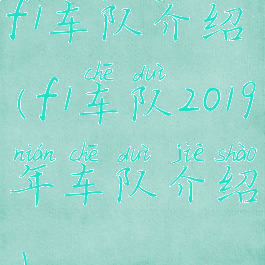 f1车队介绍
chē duì
(f1车队2019
nián chē duì jiè shào
年车队介绍
)